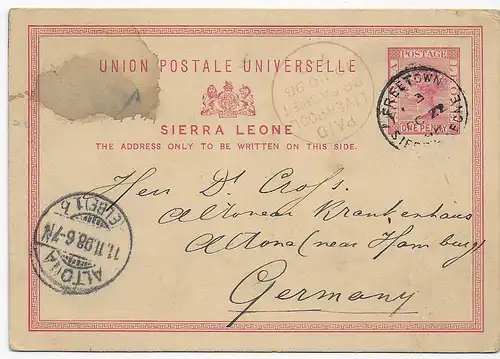 UNION POSTALE UNIVERSELLE
POSTAGE
ONE PENNY
FREETOWN
PAID
LIVERPOOL
SIERRA LEONE
THE ADDRESS ONLY TO BE WRITTEN ON THIS SIDE.
Herr Dr Cross.
Altonaer Krankenhaus
Altona (near Hamburg)
Germany
ALTONA
(ELBE) 1 b
11.11.98.6-7N